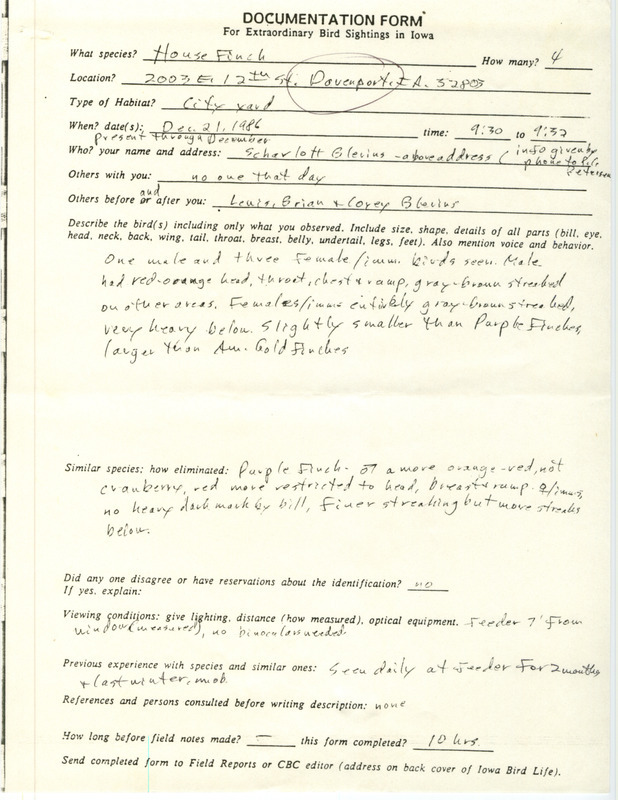 DOCUMENTATION FORM
For Extraordinary Bird Sightings in Iowa
What species? House Finch How many? 4
Location? 2003 E. 12th St. Davenport, IA. 52803
Type of Habitat? City yard
When? date(s): Dec. 21, 1986 time: 9:30 to 9:32
present through December
Who? your name and address: Scharlott Blevins - above address (info given by
phone to
Petersen
Others with you: no one that day
and
Others before or after you: Lewis, Brian & Corey Blevins
Describe the bird(s) including only what you observed. Include size, shape, details of all parts (bill, eye,
head, neck, back, wing, tail, throat, breast, belly, undertail, legs, feet). Also mention voice and behavior.
One male and three female/imm. birds seen. Male
had red-orange head, throat, chest & rump, gray-brown streaked
on other areas. Females/imms entirely gray-brown streaked,
very heavy below. Slightly smaller than Purple Finches,
larger than Am. Goldfinches
Similar species: how eliminated: Purple Finch- ♂ a more orange-red, not
cranberry, red more restricted to head, breast & rump. ♀/imms,
no heavy dark mark by bill, finer streaking but more streaks
below.
Did any one disagree or have reservations about the identification? no
If yes, explain:
Viewing conditions: give lighting, distance (how measured), optical equipment. Feeder 7' from
window (measured), no binoculars needed.
Previous experience with species and similar ones: Seen daily at feeder for 2 months
& last winter,
References and persons consulted before writing description: none
How long before field notes made? — this form completed? 10 hrs.
Send completed form to Field Reports or CBC editor (address on back cover of Iowa Bird Life).